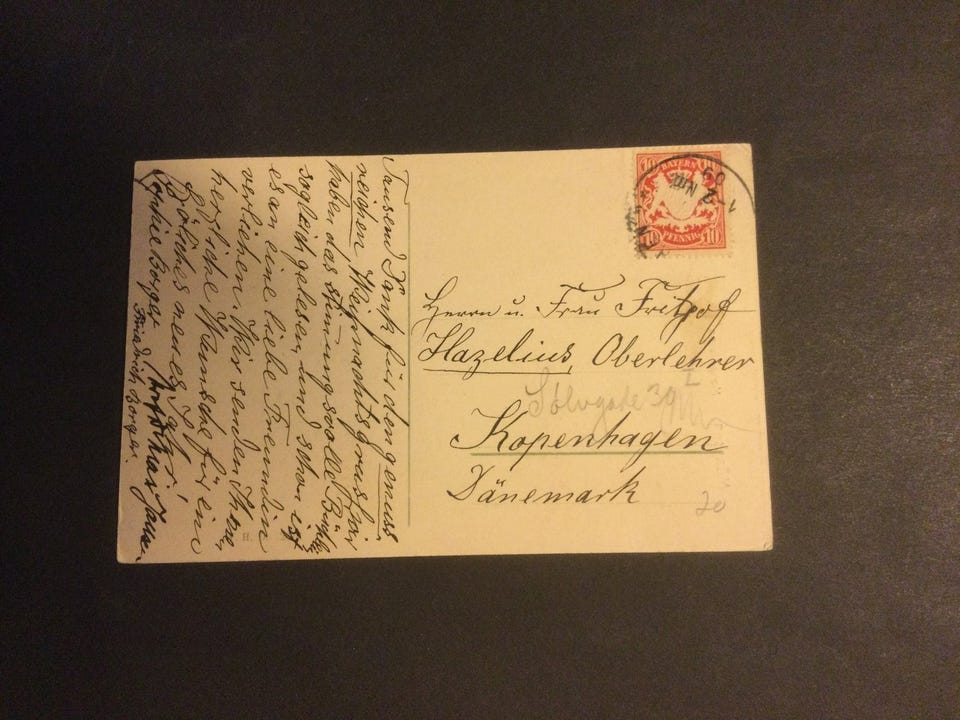 Tausend Dank für den genuss
reichen Weihnachtsgruss! Wir
haben das stimmungsvolle Büchl.
sogleich gelesen und schon ist
es an eine liebe Freundin
verliehen. Wir senden Ihnen
herzliche Wünsche für ein
fröhliches neues Jahr!
Sophie Borger
Friedrich Borger.
10 BAYERN 10
10 PFENNIG 10
Herrn u. Frau
Hazelius, Oberlehrer
Sölvgade 39 I
Kopenhagen
Dänemark
20
H.